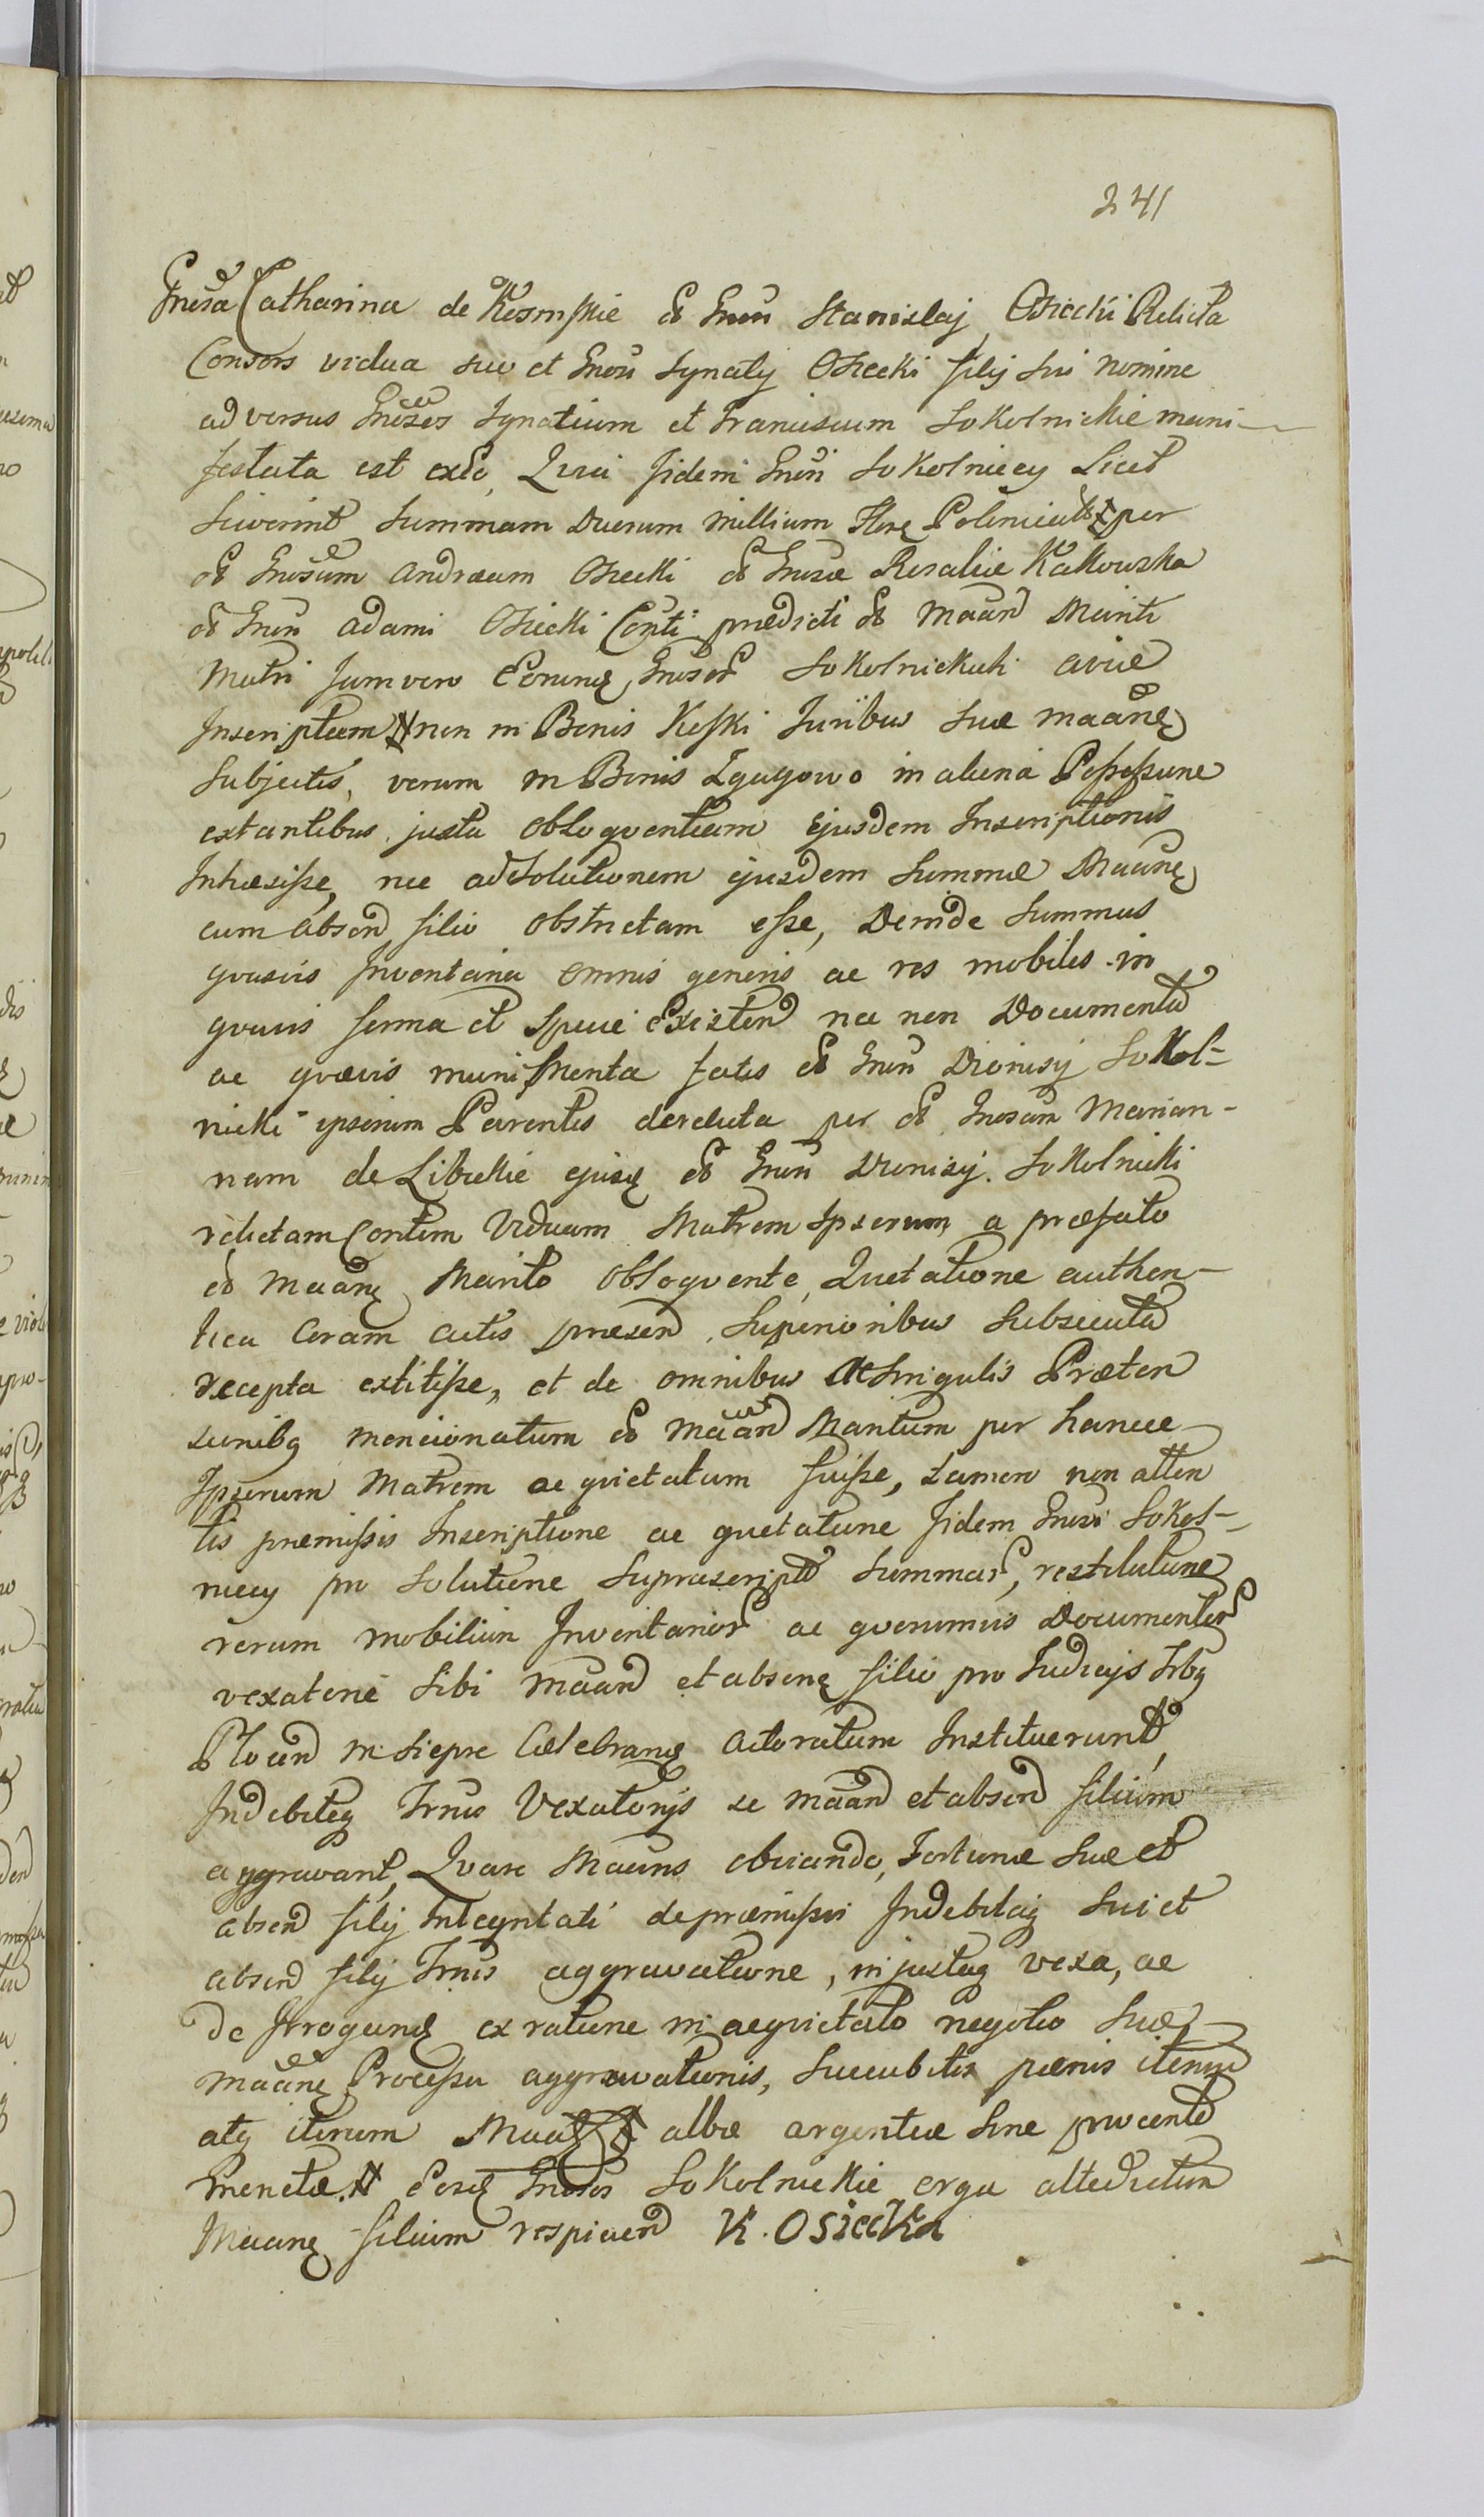 241
Gnosa Catharina de Kosinskie od Gnou Stanislaj Osiecki Relicta
Consors vidua suo et Gnou Ignatij Osiecki filij sui nomine
adversus Gnosos Ignatium et Franciscum Sokolnickie mani-
festata est exeo, Quia Jidem Gnou Sokolniccy Licet
Sciverint Summam Duorum Millium Flor Polonical per
od Gnosum Andraeam Osiecki od Gnosae Rosaliae Kakowska
od Gnou Adami Osiecki Conti praedicti od Maand Mariti
Matri Jam vero Eorumq Gnosor Sokolnickich aviae
Inscriptam non in Bonis Keski Juribus Suae maanq
Subjectis, verum in Bonis Zgagowo in aliena Possessione
extantibus justa obloquentiam Ejusdem Inscriptionis
Inhaesisse, nec ad Solutionem ejusdem Summae Maanq
cum absend filio obstrictam esse, Deinde Summas
quasvis Inventaria omnis generis ac res mobiles in
quavis forma et Specie Existend nec non Documenta
ac quaevis munimenta fatis od Gnou Dionisij Sokol-
nicki ipsorum Parentis derelicta per od Gnosam Marian-
nam de Libickie ejusq od Gnou Dionisij Sokolnicki
relictam Contem Viduam Matrem Ipsorum a praefato
od Maanq Marito obloquente Quietatione authen-
tica Coram actis praesend Superioribus Subsecuta
recepta extitisse, et de omnibus ac Singulis Praeten
sionibq mencionatum od Maand Maritum per hancce
Ipsorum Matrem ac quietatum fuisse, tamen non atten
tis praemissis Inscriptione ac quietatione Jidem Gnosi Sokol-
niccy pro Solutione Suprascript Summar, restitutione
rerum mobilium Inventarior ac quorumvis Documentor
vexatorie Sibi Maand et absenq filio pro Judicijs Trbq
Plocend in Siepre Celebranq actoratum Instituerunt,
Indebiteq Trnis Vexatorijs se Maand et absend filium
aggravant, Quare Maans obviando, Fortunae Suae et
absend filij Integritati de praemissa Indebitaq Sui et
absend filij Trnis aggravatione, injustaq vexa, ac
de Irroganq ex ratione in aequietato negotio Suae
Maanq Processu aggravationis, Succubitis paenis iterum
atq iterum albae argenteae Sine procento
monetae Eosq Gnosos Sokolnickie erga attedictum
Maanq filium respiciend K. Osiecka